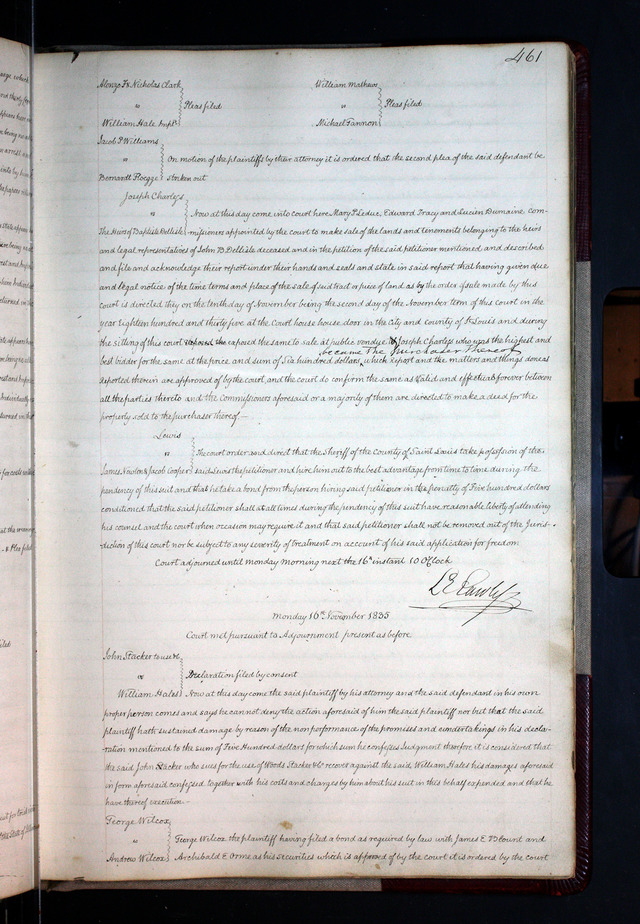 461
Alonzo F & Nicholas Clark
vs Pleas filed
William Hale Impl
William Mathews
vs Pleas filed
Michael Fannon
Jacob P Williams
vs On motion of the plaintiffs by their attorney it is ordered that the second plea of the said defendant be
Bernardt Ploegge stricken out
Joseph Charless
vs Now at this day come into court here Mary P. Leduc, Edward Tracy and Lucien Dumaine Com-
The Heirs of Baptiste Dellisle missioners appointed by the court to make sale of the lands and tenements belonging to the heirs
and legal representatives of John B Dellisle deceased and in the petition of the said petitioner mentioned and described
and file and acknowledge their report under their hands and seals and state in said report that having given due
and legal notice of the time terms and place of the sale of said tract or piece of land as by the order of sale made by this
court is directed they on the tenth day of November being the second day of the November term of this court in the
year eighteen hundred and thirty five at the Court house house door in the City and County of St Louis and during
the sitting of this court exposed the same to sale at public vendue & Joseph Charless who was the highest and
became the purchaser thereof
best bidder for the same at the price and sum of Six hundred dollars, which report and the matters and things done as
reported therein are approved of by the court, and the court do confirm the same as Valid and effectual forever between
all the parties thereto and the Commissioners aforesaid or a majority of them are directed to make a deed for the
property sold to the purchaser thereof —
Lewis
vs The court order and direct that the Sheriff of the County of Saint Louis take possession of the
James Newton & Jacob Cooper said Lewis the petitioner and hire him out to the best advantage from time to time during the
pendency of this suit and that he take a bond from the person hiring said petitioner in the penalty of Five hundred dollars
conditioned that the said petitioner shall at all times during the pendency of this suit have reasonable liberty of attending
his counsel and the court when occasion may require it and that said petitioner shall not be removed out of the Juris-
diction of this court nor be subject to any severity of treatment on account of his said application for freedom
Court adjourned until monday morning next the 16th instant 10 O'Clock
L E Lawless
Monday 16th November 1835
Court met pursuant to Adjournment present as before
John Stacker to use &c
vs Declaration filed by consent
William Hales Now at this day come the said plaintiff by his attorney and the said defendant in his own
proper person comes and says he cannot deny the action aforesaid of him the said plaintiff nor but that the said
plaintiff hath sustained damage by reason of the non performance of the promises and undertakings in his decla-
ration mentioned to the sum of Five Hundred dollars for which sum he confesses Judgment therefore it is considered that
the said John Stacker who sues for the use of Woods Stacker & Co recover against the said William Hales his damages aforesaid
in form aforesaid confessed together with his costs and charges by him about his suit in this behalf expended and that he
have thereof execution —
George Wilcox
vs George Wilcox the plaintiff having filed a bond as required by law with James E Blount and
Andrew Wilcox Archibald E Orme as his securities which is approved of by the court it is ordered by the court